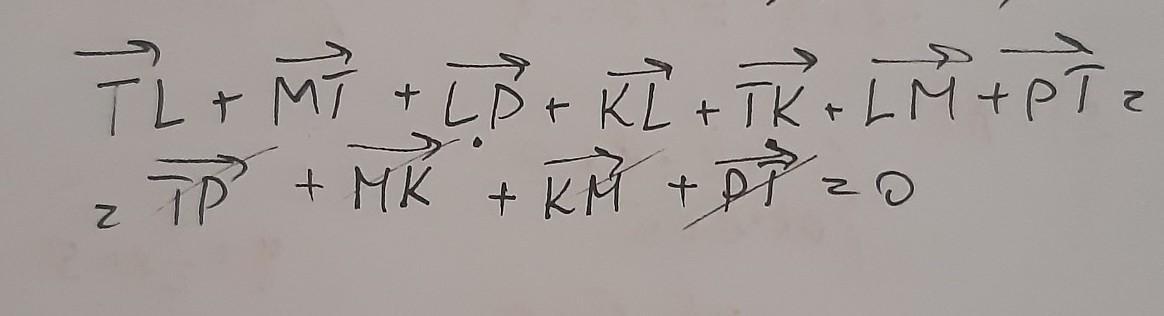 TL + MT + LP + KL + TK + LM + PT =
= TP + MK + KM + PT = 0